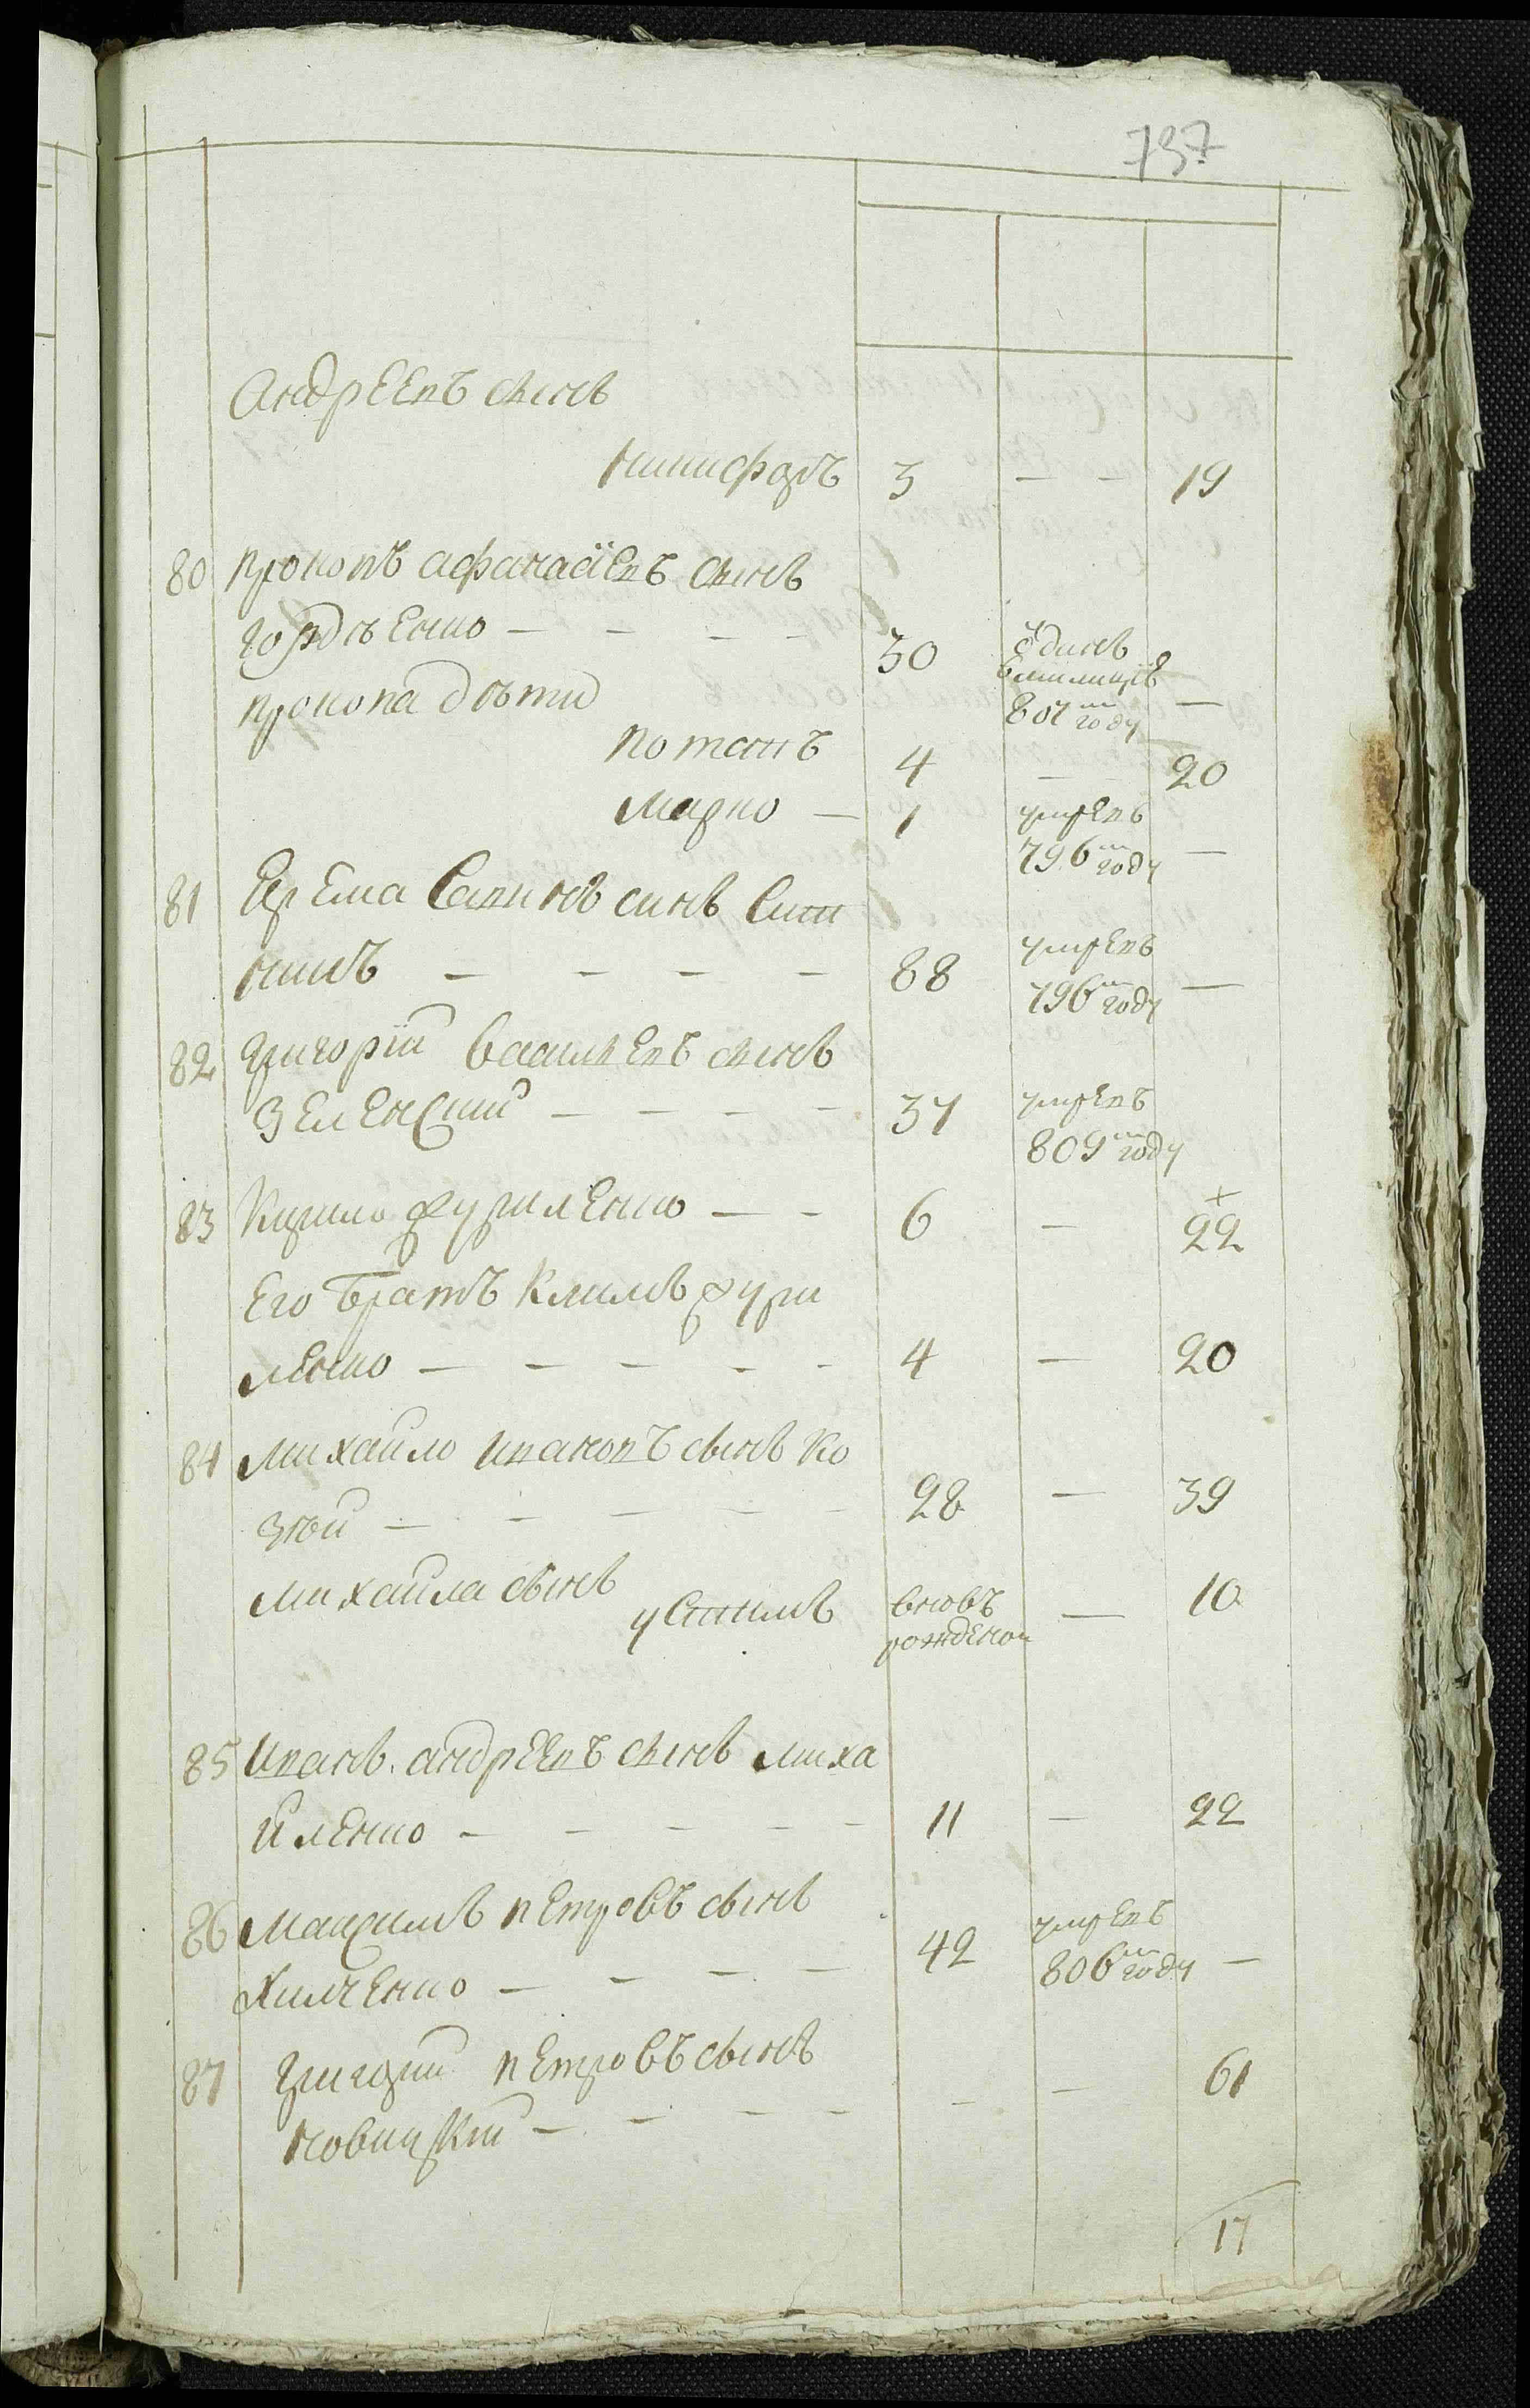 737
Андреевъ сынъ
Никифоръ 3 — — 19
80 Прокопъ афанасїевъ сынъ
гордѣенко — — — — 30 ѿданъ
вмилицїѣ
807м году —
Прокопа дѣти
Потапъ 4 — — 20
Марко — 1 умревъ
796м году —
81 Ерема Савинъ синъ
никъ — — — — 88 умревъ
796м году —
82 Григорїй Василевъ сынъ
Зеленский — — — — 37 умревъ
809м году
83 Кирило Фуриленко — — 6 — +
22
Его братъ Климъ Фури
ленко — — — — — 4 — 20
84 Михайло Ивановъ сынъ Ко
зѣй — — — — — 28 — 39
Михайла сынъ
Устимъ вновъ
рожденой — 10
85 Иванъ андреевъ сынъ Миха
йленко — — — — — 11 — 22
86 Максимъ Петровъ сынъ
Химченко — — — — 42 умревъ
806м году —
87 Григорий Петровъ сынъ
Новицкий — — — — — — 61
17